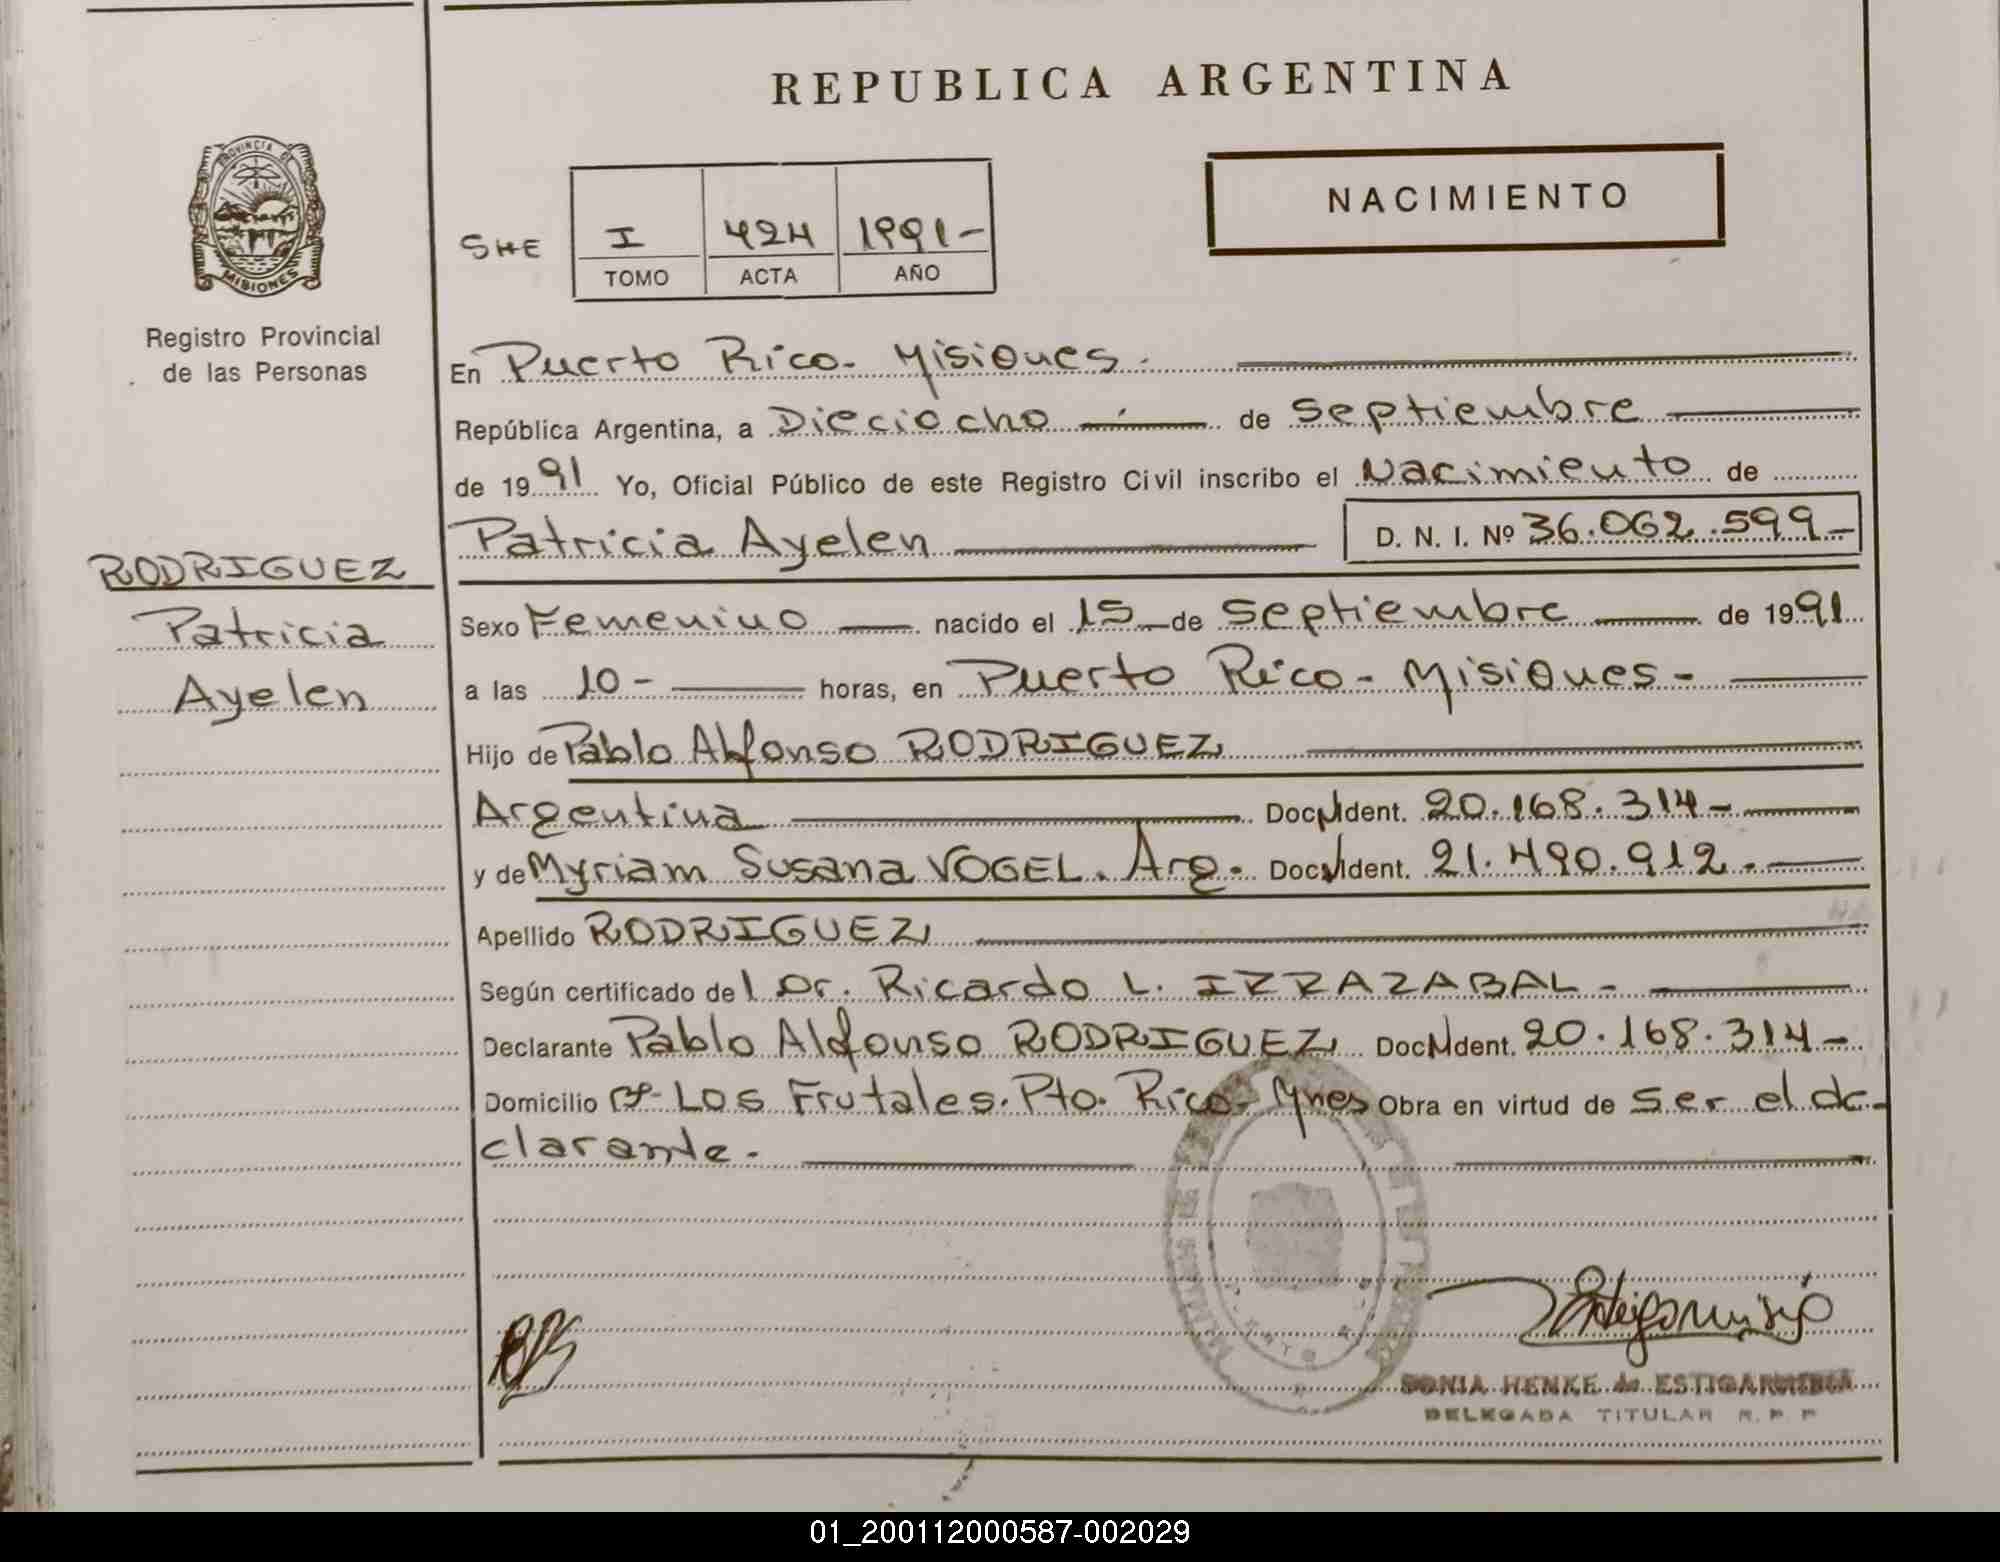 REPUBLICA ARGENTINA
PROVINCIA DE
MISIONES
Registro Provincial
de las Personas
NACIMIENTO
SHE
I 424 1991-
TOMO ACTA AÑO
En Puerto Rico- Misiones.
República Argentina, a Dieciocho de septiembre
de 1991 Yo, Oficial Público de este Registro Civil inscribo el Nacimiento de
Patricia Ayelen D. N. I. Nº 36.062.599-
RODRIGUEZ
Patricia
Ayelen
Sexo Femenino nacido el 15 de septiembre de 1991
a las 10- horas, en Puerto Rico- Misiones-
Hijo de Pablo Alfonso RODRIGUEZ
Argentina Doc. Ident. 20.168.314-
y de Myriam Susana VOGEL. Arg. Doc. Ident. 21.490.912.
Apellido RODRIGUEZ
Según certificado del Dr. Ricardo L. IRRAZABAL-
Declarante Pablo Alfonso RODRIGUEZ Doc. Ident. 20.168.314-
Domicilio Los Frutales. Pto. Rico- Mnes Obra en virtud de ser el de-
clarante.
SONIA HENKE de ESTIGARRIBIA
DELEGADA TITULAR R. P. P
01_200112000587-002029